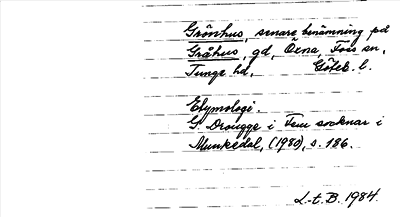 Grönhus, senare benämning på
Gråhus, gd, Öxna, Foss sn,
Tunge hd, Göteb. l.
Etymologi.
G. Drougge i Fem socknar i
Munkedal, (1980), s. 186.
L-t. B. 1984.